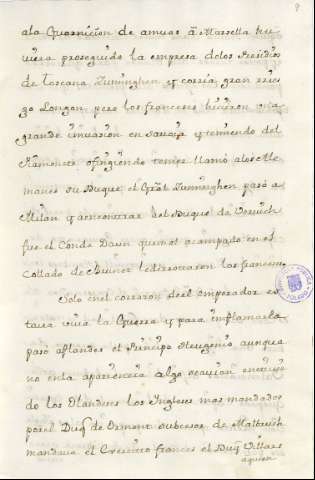 ala Guarnicion de amvas a Marsella hu
viera proseguido la empresa delos Presidios
de Toscana Zuminghen y corria gran ries
go Longon, pero los franceses hicieron una
grande imvasion en Savoya y temiendo del
Piamonte o fingiendo temer llamó alos Ale
manes su Duque, el Gral Zuminghen pasó a
Milan y a encontrar del Duque de
fue el Conde Daun quien acampado en el
Collado de lederrotaron los franceses
Solo en el corazon del emperador es
tava viva la Guerra y para imflamarla
pasó a flandes el Principe Eugenio aunque
no en la aparencia algo
do los Olandeses los Ingleses mas mandados
por el Duq de Ormont subcesor de Malbruch
mandava el Exercito frances el Duq Villars
aquien